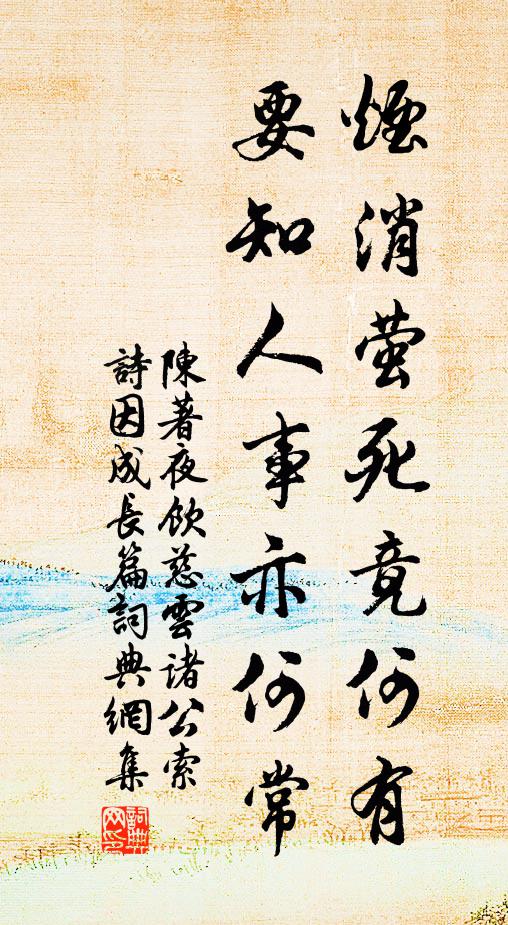 煙消螢死竟何有
要知人事亦何常
陳著夜飲慈雲諸公索
詩因成長篇詞典網集
詞典
网印